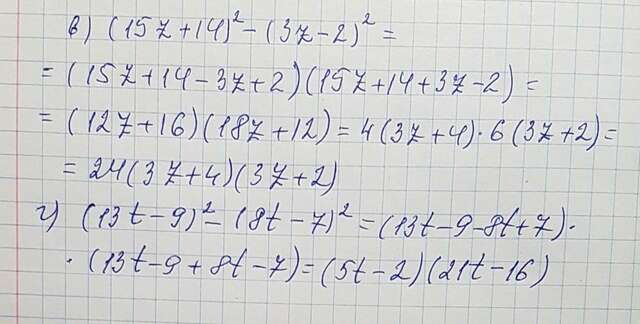 в) (15z+14)² - (3z-2)² =
= (15z+14-3z+2)(15z+14+3z-2) =
= (12z+16)(18z+12) = 4(3z+4)·6(3z+2) =
= 24(3z+4)(3z+2)
г) (13t-9)² - (8t-7)² = (13t-9-8t+7)·
·(13t-9+8t-7) = (5t-2)(21t-16)